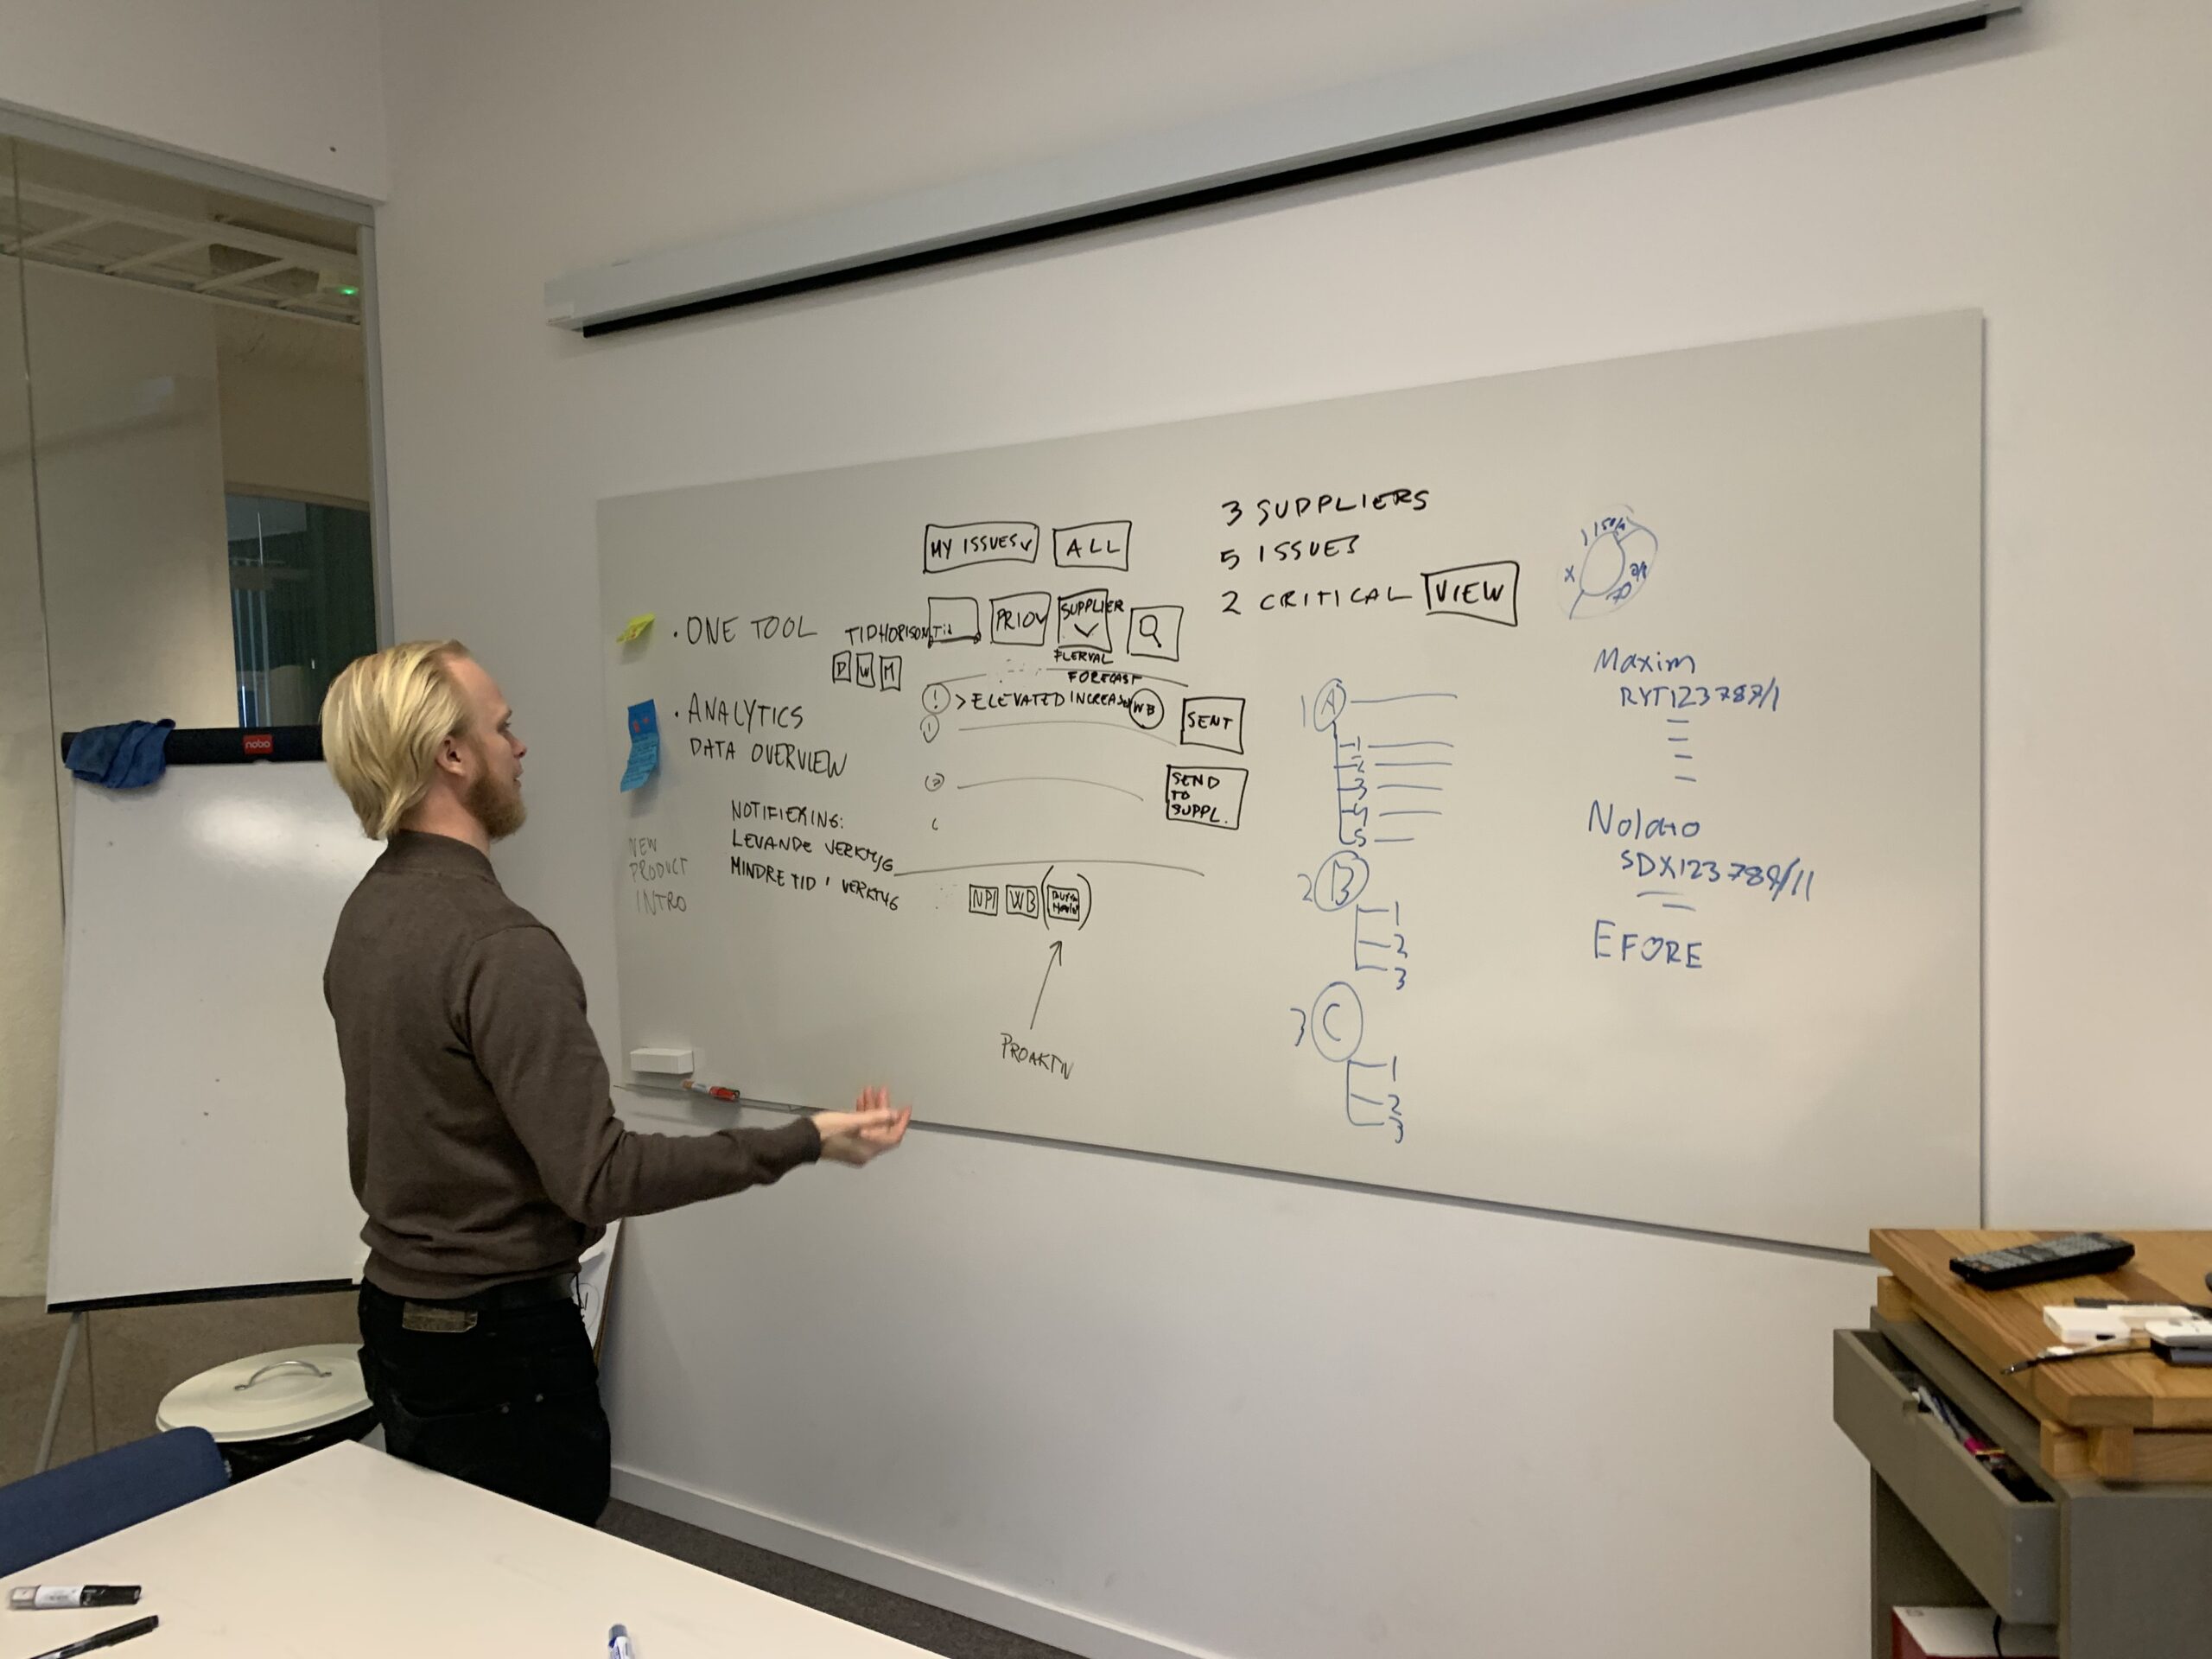 nobo
• ONE TOOL
• ANALYTICS
DATA OVERVIEW
NOTIFIERING:
LEVANDE VERKTYG
MINDRE TID I VERKTYG
NEW
PRODUCT
INTRO
MY ISSUES ALL
TIDHORISONT Tid PRIO SUPPLIER
D W M
FLERVAL
FORECAST
! > ELEVATED INCREASE WB SENT
!
SEND
TO
SUPPL.
NPI WB
PROAKTIV
3 SUPPLIERS
5 ISSUES
2 CRITICAL VIEW
1 A
1
2
3
4
5
2 B
1
2
3
3 C
1
2
3
X
Maxim
RYT123787/1
Nolato
SDX123789/11
EFORE